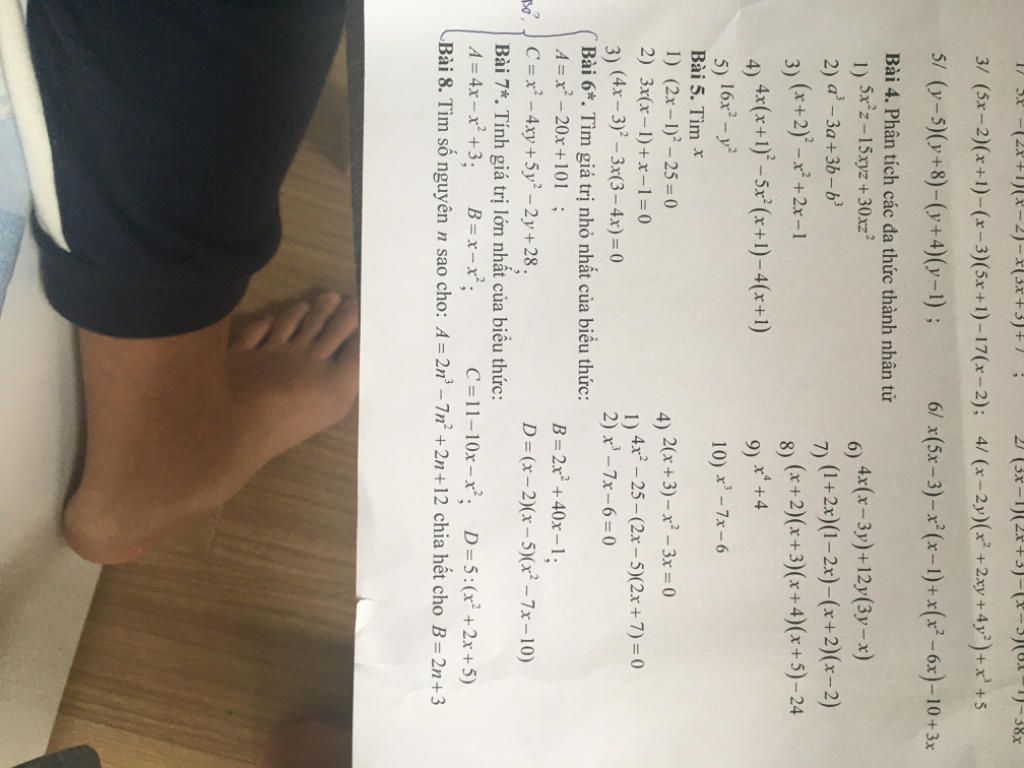 1/ 3x − (2x+1)(x−2) − x(3x+3)+7 ; 2/ (3x−1)(2x+3)−(x−5)(6x−1)−38x
3/ (5x−2)(x+1)−(x−3)(5x+1)−17(x−2); 4/ (x−2y)(x²+2xy+4y²)+x³+5
5/ (y−5)(y+8)−(y+4)(y−1) ; 6/ x(5x−3)−x²(x−1)+x(x²−6x)−10+3x
Bài 4. Phân tích các đa thức thành nhân tử
1) 5x²z−15xyz+30xz² 6) 4x(x−3y)+12y(3y−x)
2) a³−3a+3b−b³ 7) (1+2x)(1−2x)−(x+2)(x−2)
3) (x+2)²−x²+2x−1 8) (x+2)(x+3)(x+4)(x+5)−24
4) 4x(x+1)²−5x²(x+1)−4(x+1) 9) x⁴+4
5) 16x²−y² 10) x³−7x−6
Bài 5. Tìm x
1) (2x−1)²−25=0 4) 2(x+3)−x²−3x=0
2) 3x(x−1)+x−1=0 1) 4x²−25−(2x−5)(2x+7)=0
3) (4x−3)²−3x(3−4x)=0 2) x³−7x−6=0
Bài 6*. Tìm giá trị nhỏ nhất của biểu thức:
A=x²−20x+101 ; B=2x²+40x−1;
C=x²−4xy+5y²−2y+28; D=(x−2)(x−5)(x²−7x−10)
Bài 7*. Tính giá trị lớn nhất của biểu thức:
A=4x−x²+3; B=x−x²; C=11−10x−x²; D=5:(x²+2x+5)
Bài 8. Tìm số nguyên n sao cho: A=2n³−7n²+2n+12 chia hết cho B=2n+3